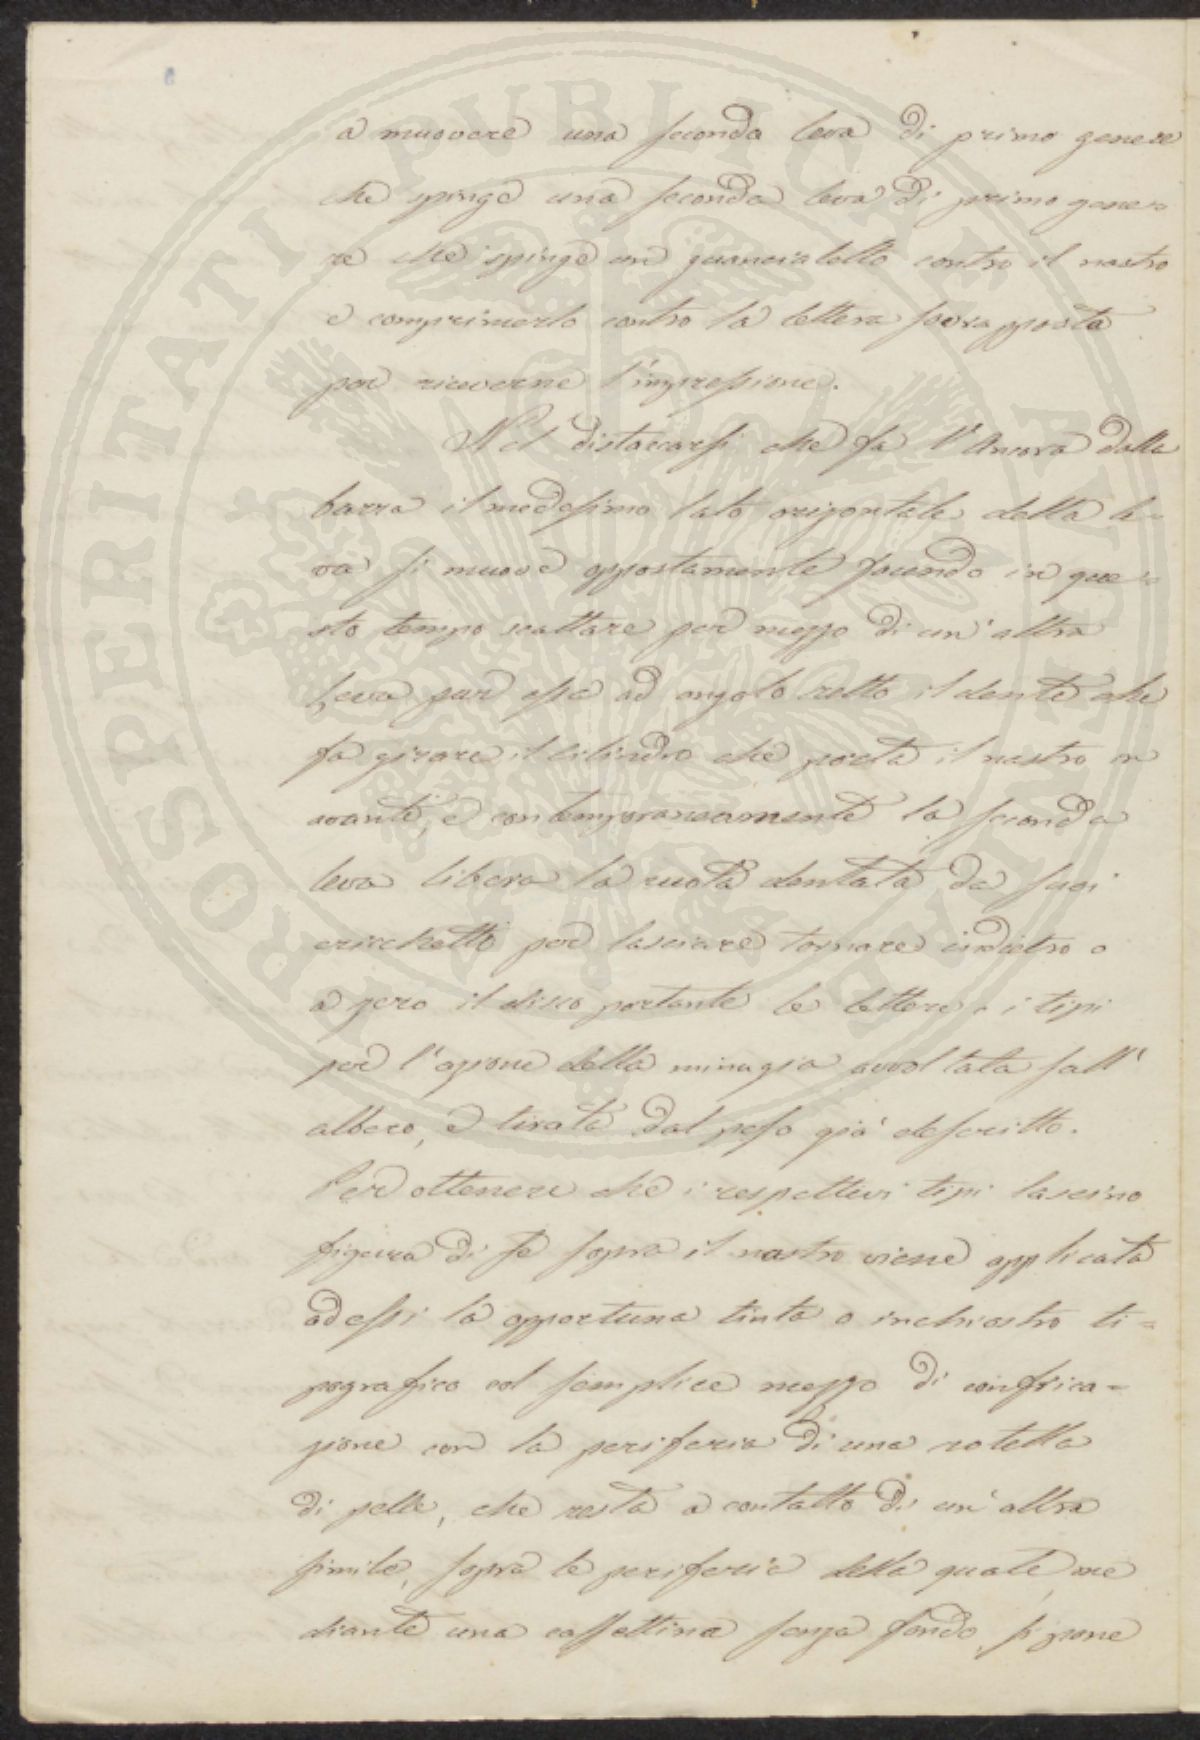 a muovere una seconda leva di primo genere
che spinge una seconda leva di primo gene=
re che spinge un guancialetto contro il nastro
e comprimerlo contro la lettera sovrapposta
per riceverne l'impressione.
Nel distaccarsi che fa l'Ancora dalla
barra il medesimo lato orizontale della le=
va si muove oppostamente facendo in que=
sto tempo scattare per mezzo di un'altra
Leva pur essa ad angolo retto il dente che
fa girare il cilindro che porta il nastro in
avanti, e contemporaneamente la seconda
leva libera la ruota dentata da suoi
cricchetti per lasciare tornare indietro o
a zero il disco portante le lettere o i tipi
per l'azione della minugia avvoltata sull'
albero, e tirata dal peso già descritto.
Per ottenere che i respettivi tipi lascino
figura di se sopra il nastro viene applicata
ad essi la opportuna tinta o inchiostro ti=
pografico col semplice mezzo di confrica=
zione con la periferia di una rotella
di pelle, che resta a contatto di un'altra
simile, sopra la periferia della quale, me
diante una cassettina senza fondo, si pone
PROSPERITATI PUBLICAE AUGENDAE